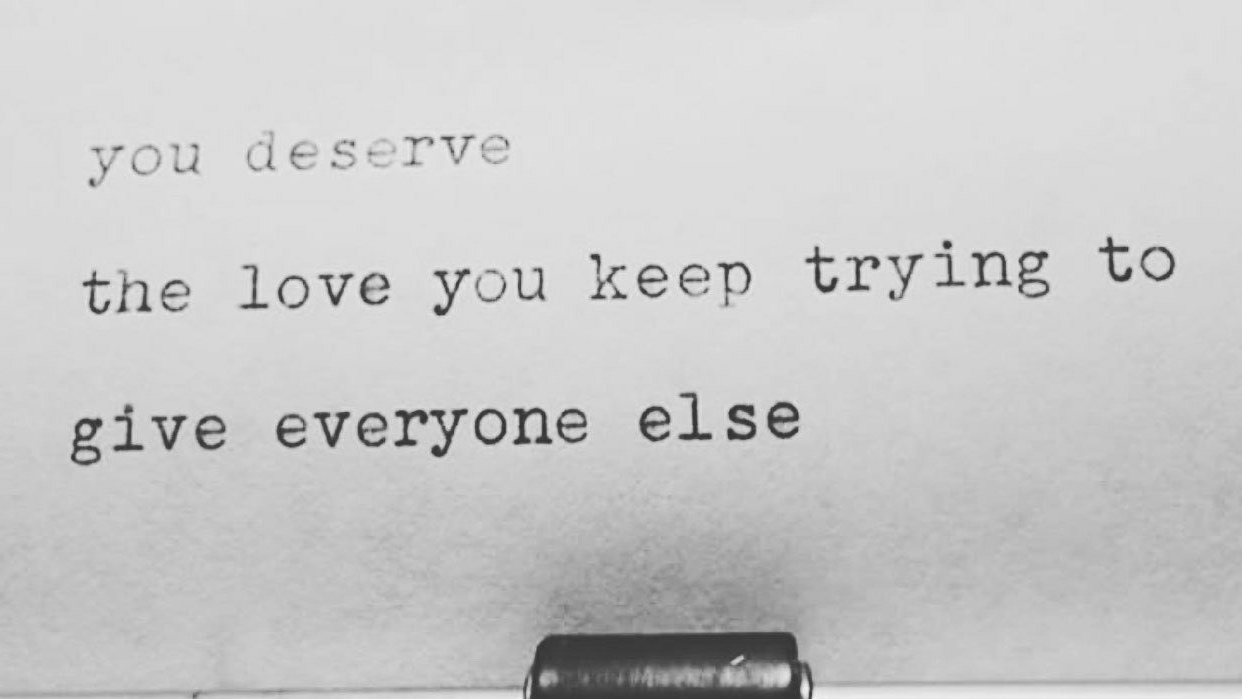 you deserve
the love you keep trying to
give everyone else